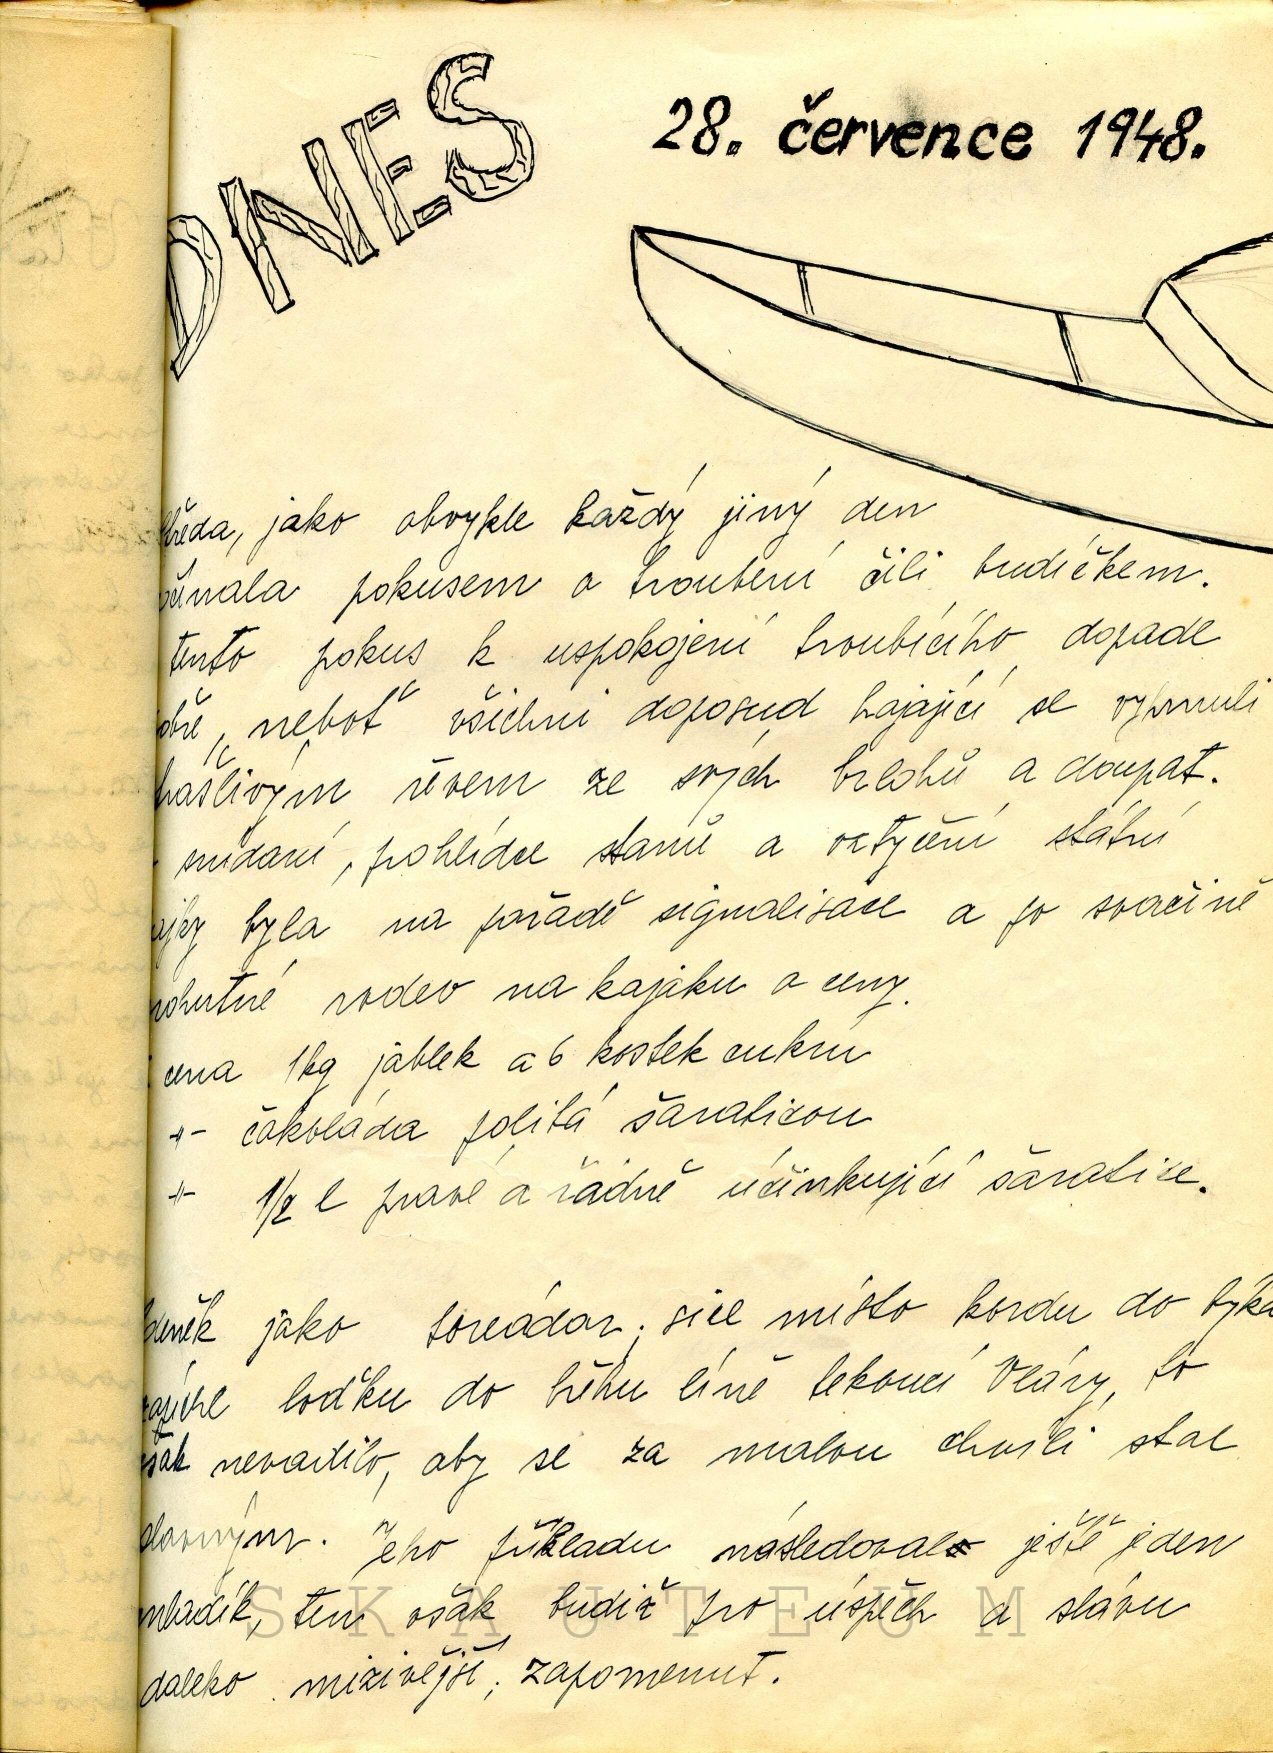 DNES
28. července 1948.
středa, jako obvykle každý jiný den
očínala pokusem o troubení čili budíčkem.
tento pokus k uspokojení troubícího dopadl
obře, neboť všichni doposud hajající se vyhrnuli
rašlivým řevem ze svých brlohů a doupat.
snídani, prohlídce stanů a vztyčení státní
ajky byla na pořadě signalisace a po svačině
mohutné rodeo na kajaku o ceny.
cena 1kg jablek a 6 kostek cukru
-"- čokoláda politá šaraticou
-"- 1/2 l pravé a řádně účinkující šaratice.
Zdeněk jako toreádor; sice místo kordu do býka
zapíchl loďku do břehu líně tekoucí Vláry, to
však nevadilo, aby se za malou chvíli stal
slavným. Jeho příkladu následoval ještě jeden
mladík, ten však budiž pro úspěch a slávu
daleko mizivější, zapomenut.
SKAUTEUM